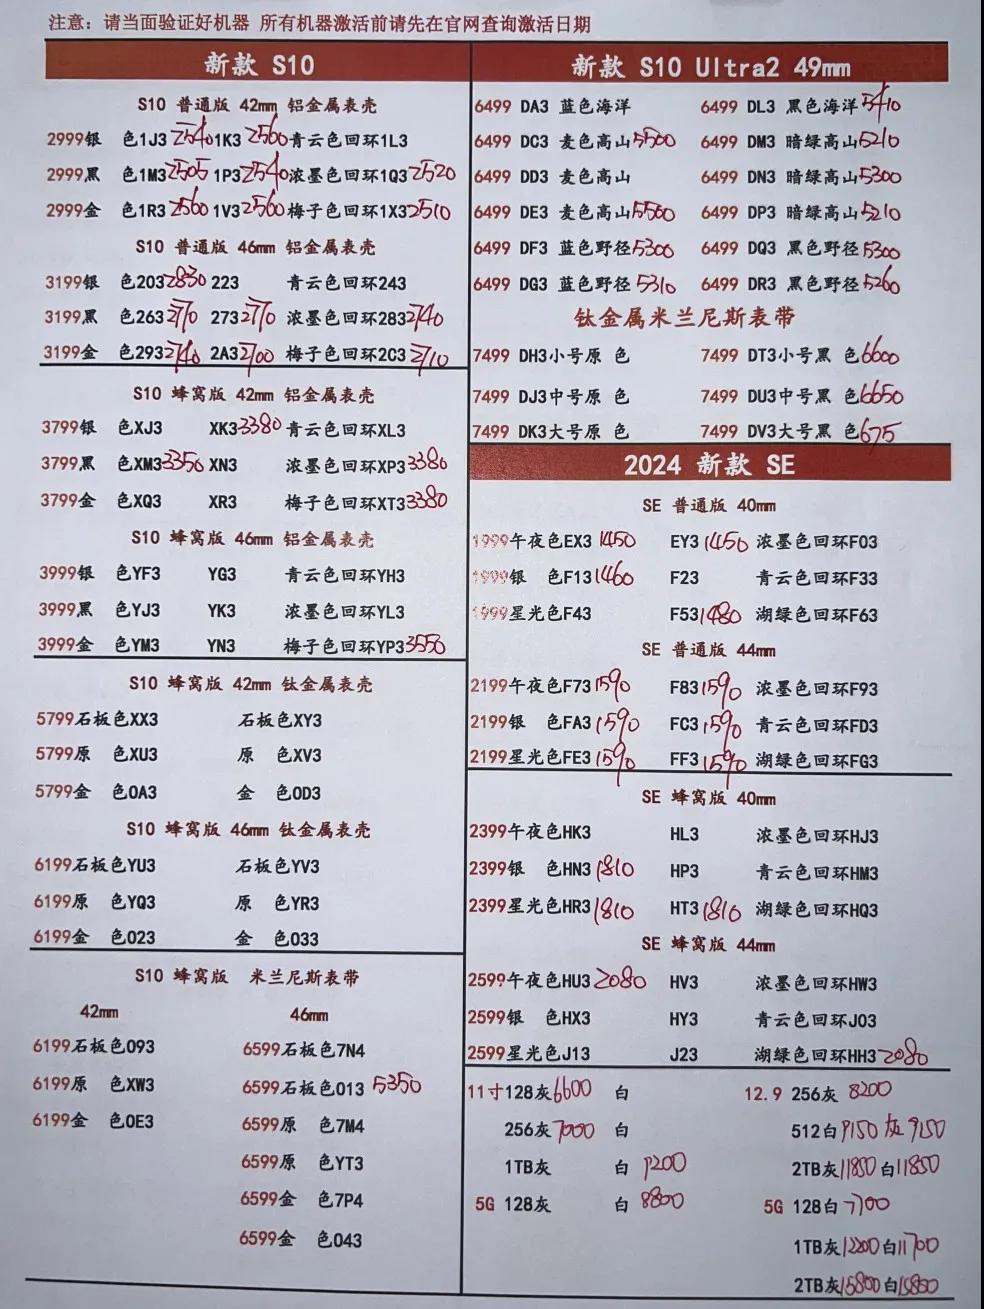 注意：请当面验证好机器 所有机器激活前请先在官网查询激活日期
新款 S10
S10 普通版 42mm 铝金属表壳
2999银 色1J3 2540 1K3 2560 青云色回环1L3
2999黑 色1M3 2505 1P3 2540 浓墨色回环1Q3 2520
2999金 色1R3 2560 1V3 2560 梅子色回环1X3 2510
S10 普通版 46mm 铝金属表壳
3199银 色203 2830 223 青云色回环243
3199黑 色263 2770 273 2710 浓墨色回环283 2740
3199金 色293 2740 2A3 2700 梅子色回环2C3 2710
S10 蜂窝版 42mm 铝金属表壳
3799银 色XJ3 XK3 3380 青云色回环XL3
3799黑 色XM3 3350 XN3 浓墨色回环XP3 3380
3799金 色XQ3 XR3 梅子色回环XT3 3380
S10 蜂窝版 46mm 铝金属表壳
3999银 色YF3 YG3 青云色回环YH3
3999黑 色YJ3 YK3 浓墨色回环YL3
3999金 色YM3 YN3 梅子色回环YP3 3550
S10 蜂窝版 42mm 钛金属表壳
5799石板色XX3 石板色XY3
5799原 色XU3 原 色XV3
5799金 色0A3 金 色0D3
S10 蜂窝版 46mm 钛金属表壳
6199石板色YU3 石板色YV3
6199原 色YQ3 原 色YR3
6199金 色023 金 色033
S10 蜂窝版 米兰尼斯表带
42mm 46mm
6199石板色093 6599石板色7N4
6199原 色XW3 6599石板色013 5350
6199金 色0E3 6599原 色7M4
6599原 色YT3
6599金 色7P4
6599金 色043
新款 S10 Ultra2 49mm
6499 DA3 蓝色海洋 6499 DL3 黑色海洋 5410
6499 DC3 麦色高山 5500 6499 DM3 暗绿高山 5210
6499 DD3 麦色高山 6499 DN3 暗绿高山 5300
6499 DE3 麦色高山 5560 6499 DP3 暗绿高山 5210
6499 DF3 蓝色野径 5300 6499 DQ3 黑色野径 5300
6499 DG3 蓝色野径 5310 6499 DR3 黑色野径 5260
钛金属米兰尼斯表带
7499 DH3小号原 色 7499 DT3小号黑 色 6600
7499 DJ3中号原 色 7499 DU3中号黑 色 6650
7499 DK3大号原 色 7499 DV3大号黑 色 675
2024 新款 SE
SE 普通版 40mm
1999午夜色EX3 1450 EY3 1450 浓墨色回环F03
1999银 色F13 1460 F23 青云色回环F33
1999星光色F43 F53 1480 湖绿色回环F63
SE 普通版 44mm
2199午夜色F73 1590 F83 1590 浓墨色回环F93
2199银 色FA3 1590 FC3 1590 青云色回环FD3
2199星光色FE3 1590 FF3 1590 湖绿色回环FG3
SE 蜂窝版 40mm
2399午夜色HK3 HL3 浓墨色回环HJ3
2399银 色HN3 1810 HP3 青云色回环HM3
2399星光色HR3 1810 HT3 1810 湖绿色回环HQ3
SE 蜂窝版 44mm
2599午夜色HU3 2080 HV3 浓墨色回环HW3
2599银 色HX3 HY3 青云色回环J03
2599星光色J13 J23 湖绿色回环HH3 2080
11寸128灰 6600 白 12.9 256灰 8200
256灰 7000 白 512白 9150 灰 9150
1TB灰 白 9200 2TB灰 11850 白 11850
5G 128灰 白 8800 5G 128白 7700
1TB灰 12200 白 11700
2TB灰 15800 白 15800